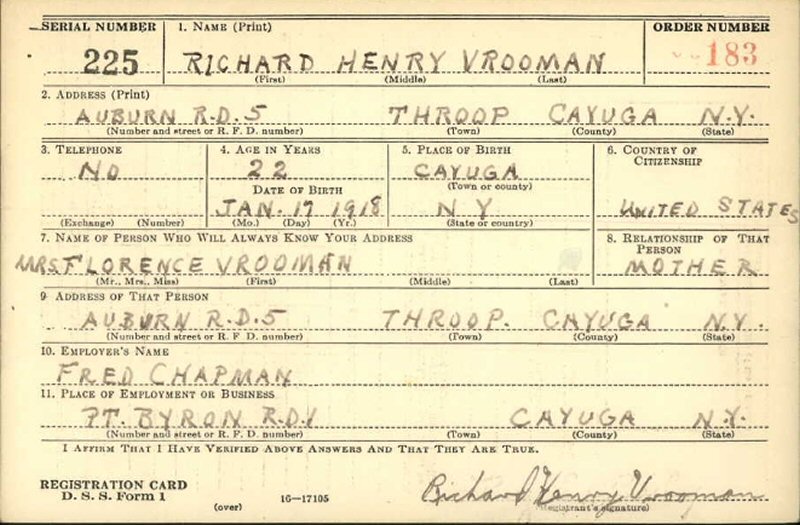 SERIAL NUMBER 1. NAME (Print) ORDER NUMBER
225 RICHARD HENRY VROOMAN 183
(First) (Middle) (Last)
2. ADDRESS (Print)
AUBURN R.D.5 THROOP CAYUGA N.Y.
(Number and street or R. F. D. number) (Town) (County) (State)
3. TELEPHONE 4. AGE IN YEARS 5. PLACE OF BIRTH 6. COUNTRY OF
CITIZENSHIP
NO 22 CAYUGA
DATE OF BIRTH (Town or county)
JAN. 17 1918 N Y UNITED STATES
(Exchange) (Number) (Mo.) (Day) (Yr.) (State or country)
7. NAME OF PERSON WHO WILL ALWAYS KNOW YOUR ADDRESS 8. RELATIONSHIP OF THAT
PERSON
MRS FLORENCE VROOMAN MOTHER
(Mr., Mrs., Miss) (First) (Middle) (Last)
9 ADDRESS OF THAT PERSON
AUBURN R.D.5 THROOP. CAYUGA N.Y.
(Number and street or R. F. D. number) (Town) (County) (State)
10. EMPLOYER'S NAME
FRED CHAPMAN
11. PLACE OF EMPLOYMENT OR BUSINESS
PT. BYRON R.D.1 CAYUGA N.Y.
(Number and street or R. F. D. number) (Town) (County) (State)
I AFFIRM THAT I HAVE VERIFIED ABOVE ANSWERS AND THAT THEY ARE TRUE.
REGISTRATION CARD Richard Henry Vrooman
D. S. S. Form 1 (over) 16-17105 (Registrant's signature)